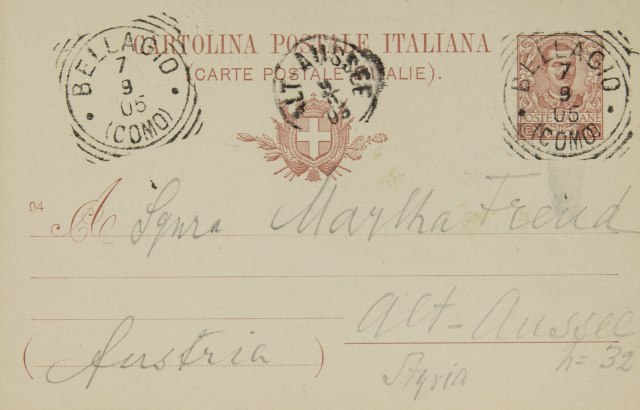 CARTOLINA POSTALE ITALIANA
(CARTE POSTALE ITALIE).
BELLAGIO
7
9
05
(COMO)
ALT AUSSEE
BELLAGIO
7
9
05
(COMO)
POSTE ITALIANE
04
A Sgnra Martha Freud
Alt-Aussee
(Austria)
Styria
h= 32